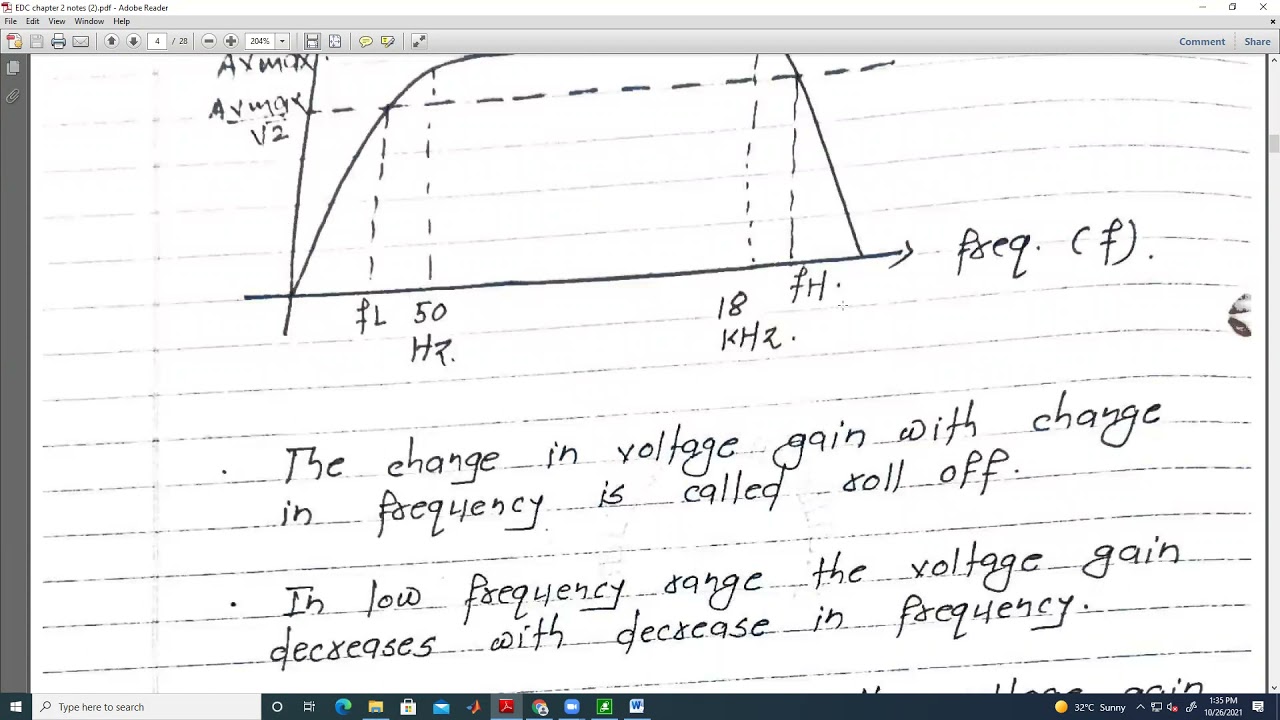 EDC chapter 2 notes (2).pdf - Adobe Reader
File Edit View Window Help
4 / 28 204% Comment Share
Avmax.
Avmax
√2
freq. (f).
fL 50
Hz.
18
KHz.
fH.
. The change in voltage gain with change
in frequency is called roll off.
. In low frequency range the voltage gain
decreases with decrease in frequency.
voltage gain
Type here to search
32°C Sunny
1:35 PM
10/26/2021